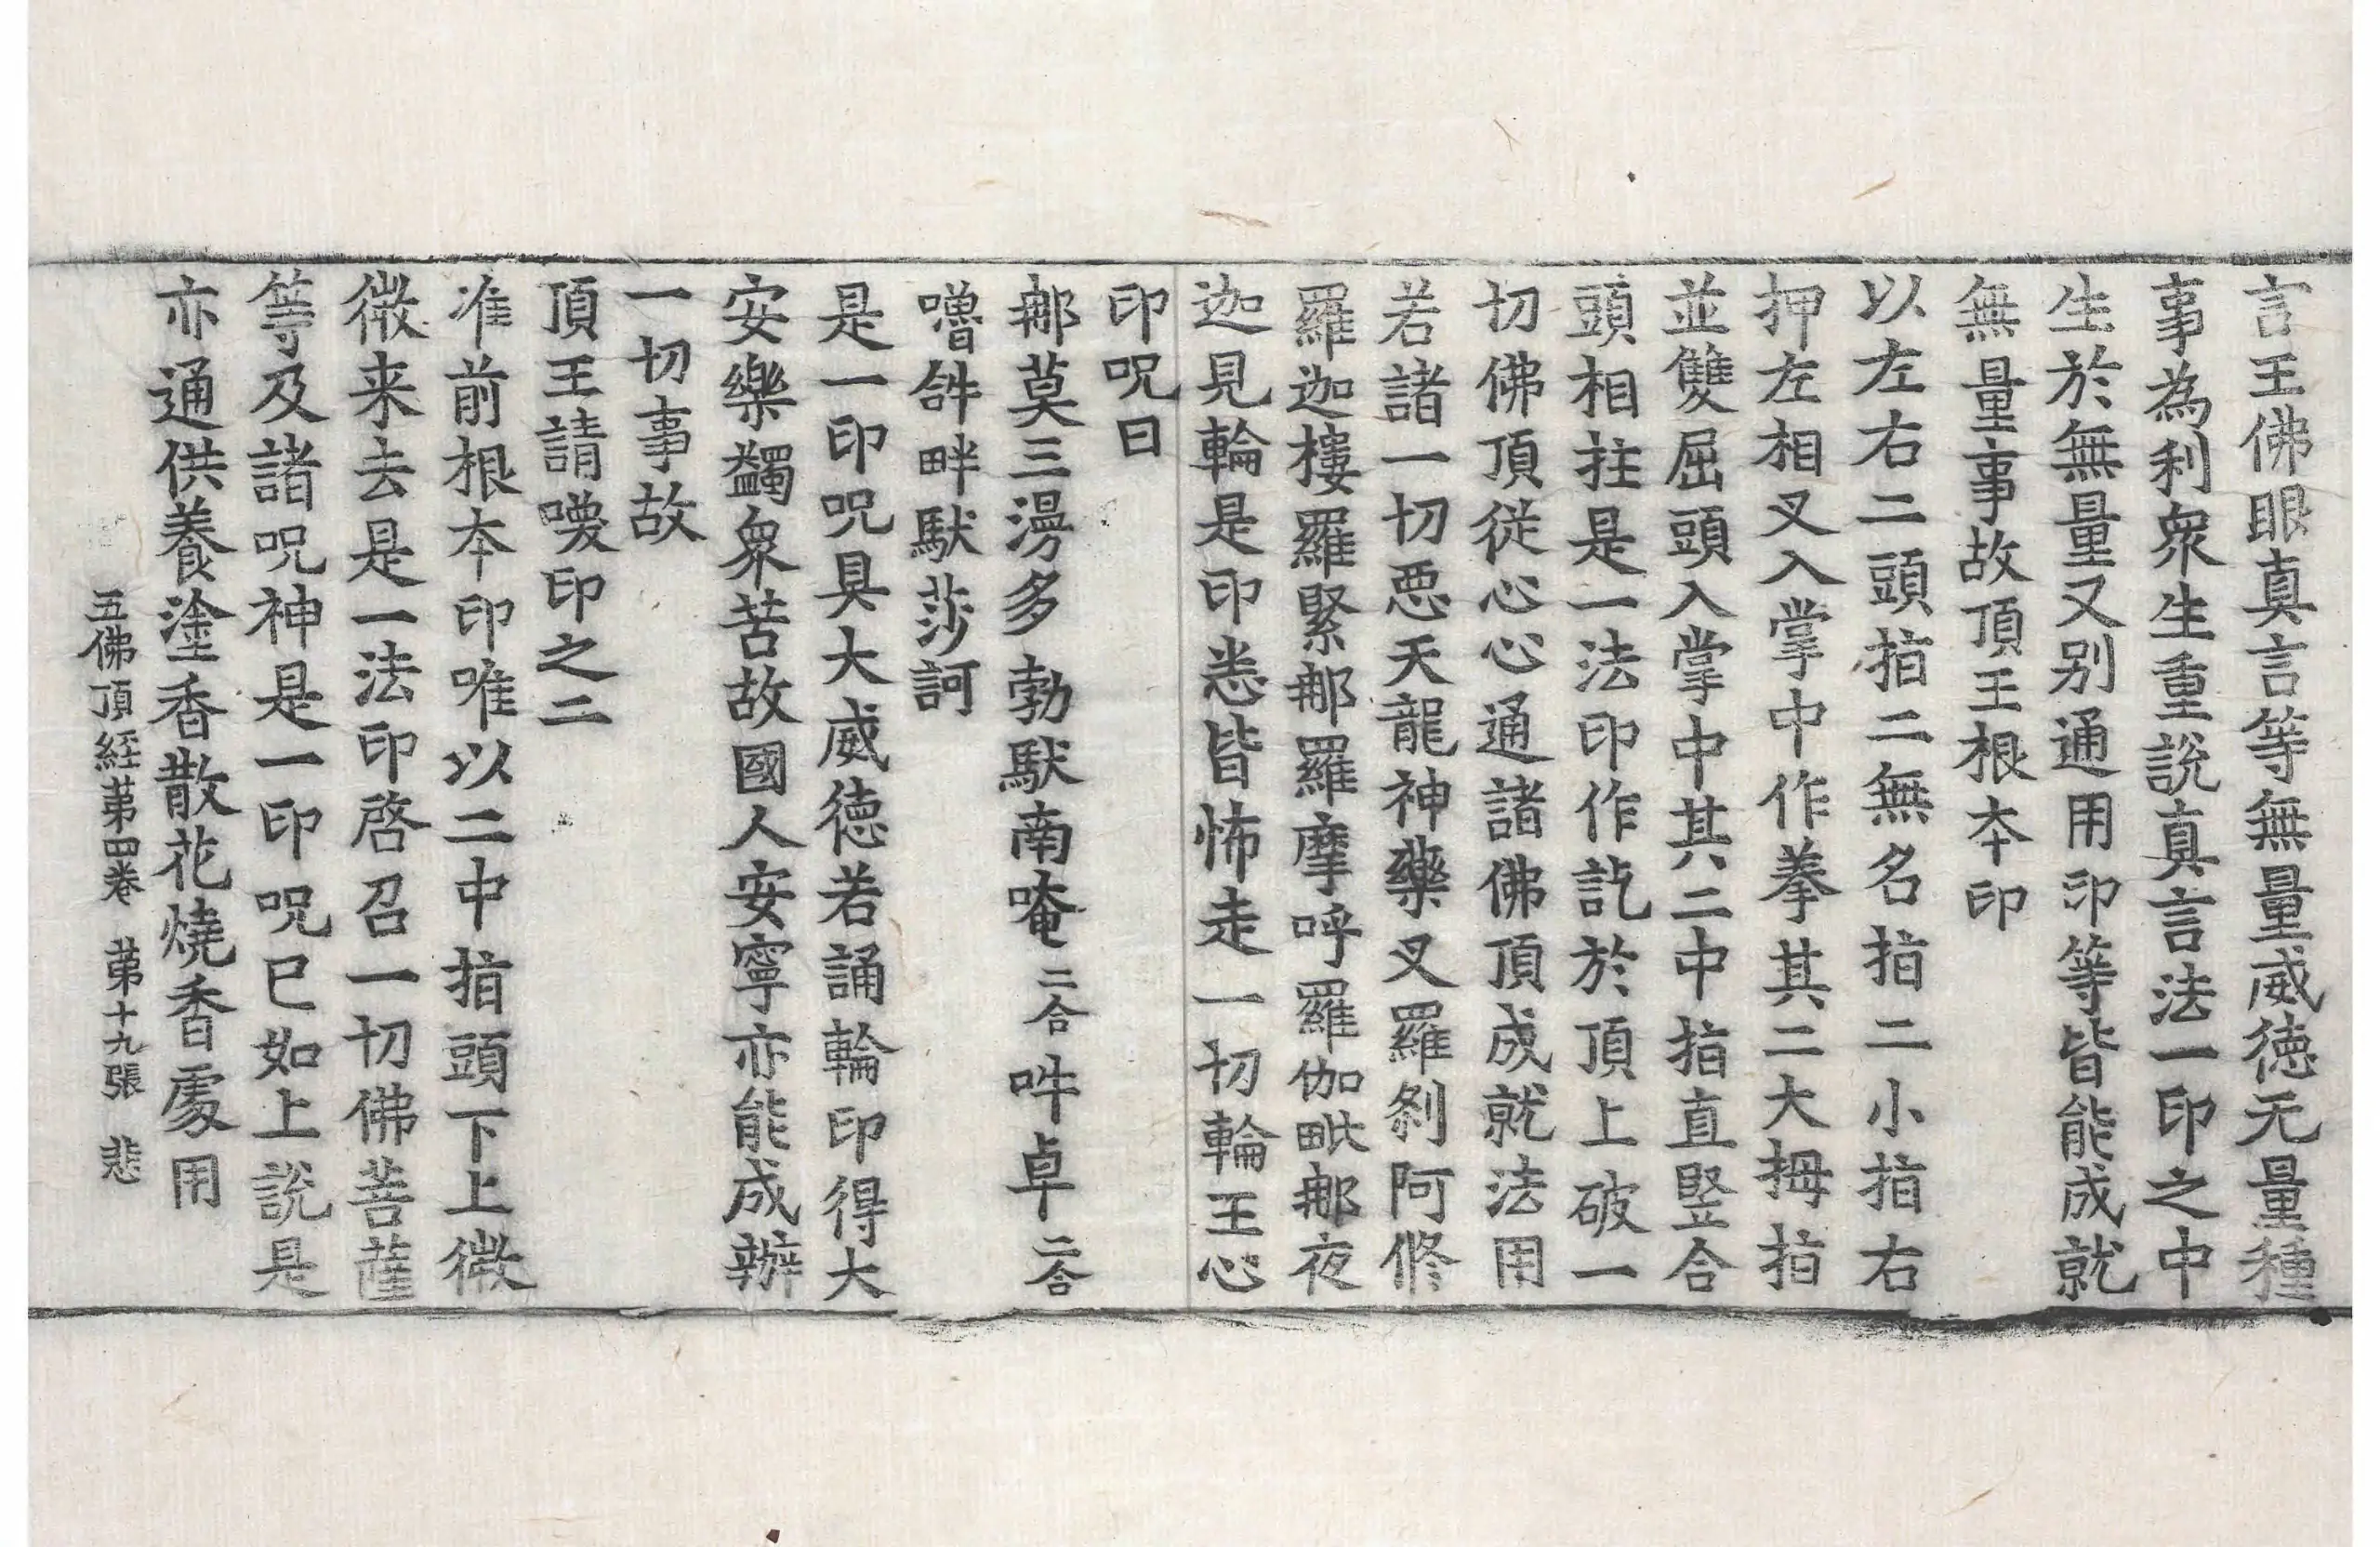 言王佛眼真言等無量威徳无量種
事為利衆生重說真言法一印之中
生於無量又别通用印等皆能成就
無量事故頂王根夲印
以左右二頭指二無名指二小指右
押左相叉入掌中作拳其二大拇指
並雙屈頭入掌中其二中指直竪合
頭相拄是一法印作訖於頂上破一
切佛頂從心心通諸佛頂成就法用
若諸一切惡天龍神藥叉羅剎阿修
羅迦樓羅緊那羅摩呼羅伽毗那夜
迦見輪是印悉皆怖走一切輪王心
印呪曰
那莫三漫多勃馱南唵二合吽卓二合
嚕𤙖畔馱莎訶
是一印呪具大威德若誦輪印得大
安樂蠲衆苦故國人安寧亦能成辦
一切事故
頂王請喚印之二
准前根夲印唯以二中指頭下上微
微来去是一法印啓召一切佛菩薩
等及諸呪神是一印呪已如上說是
亦通供養塗香散花燒香處用
五佛頂經第四卷 第十九張 悲